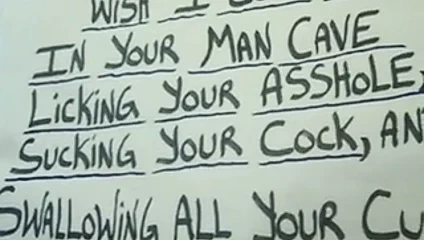 WISH I
IN YOUR MAN CAVE
LICKING YOUR ASSHOLE,
SUCKING YOUR COCK, AN
SWALLOWING ALL YOUR CU